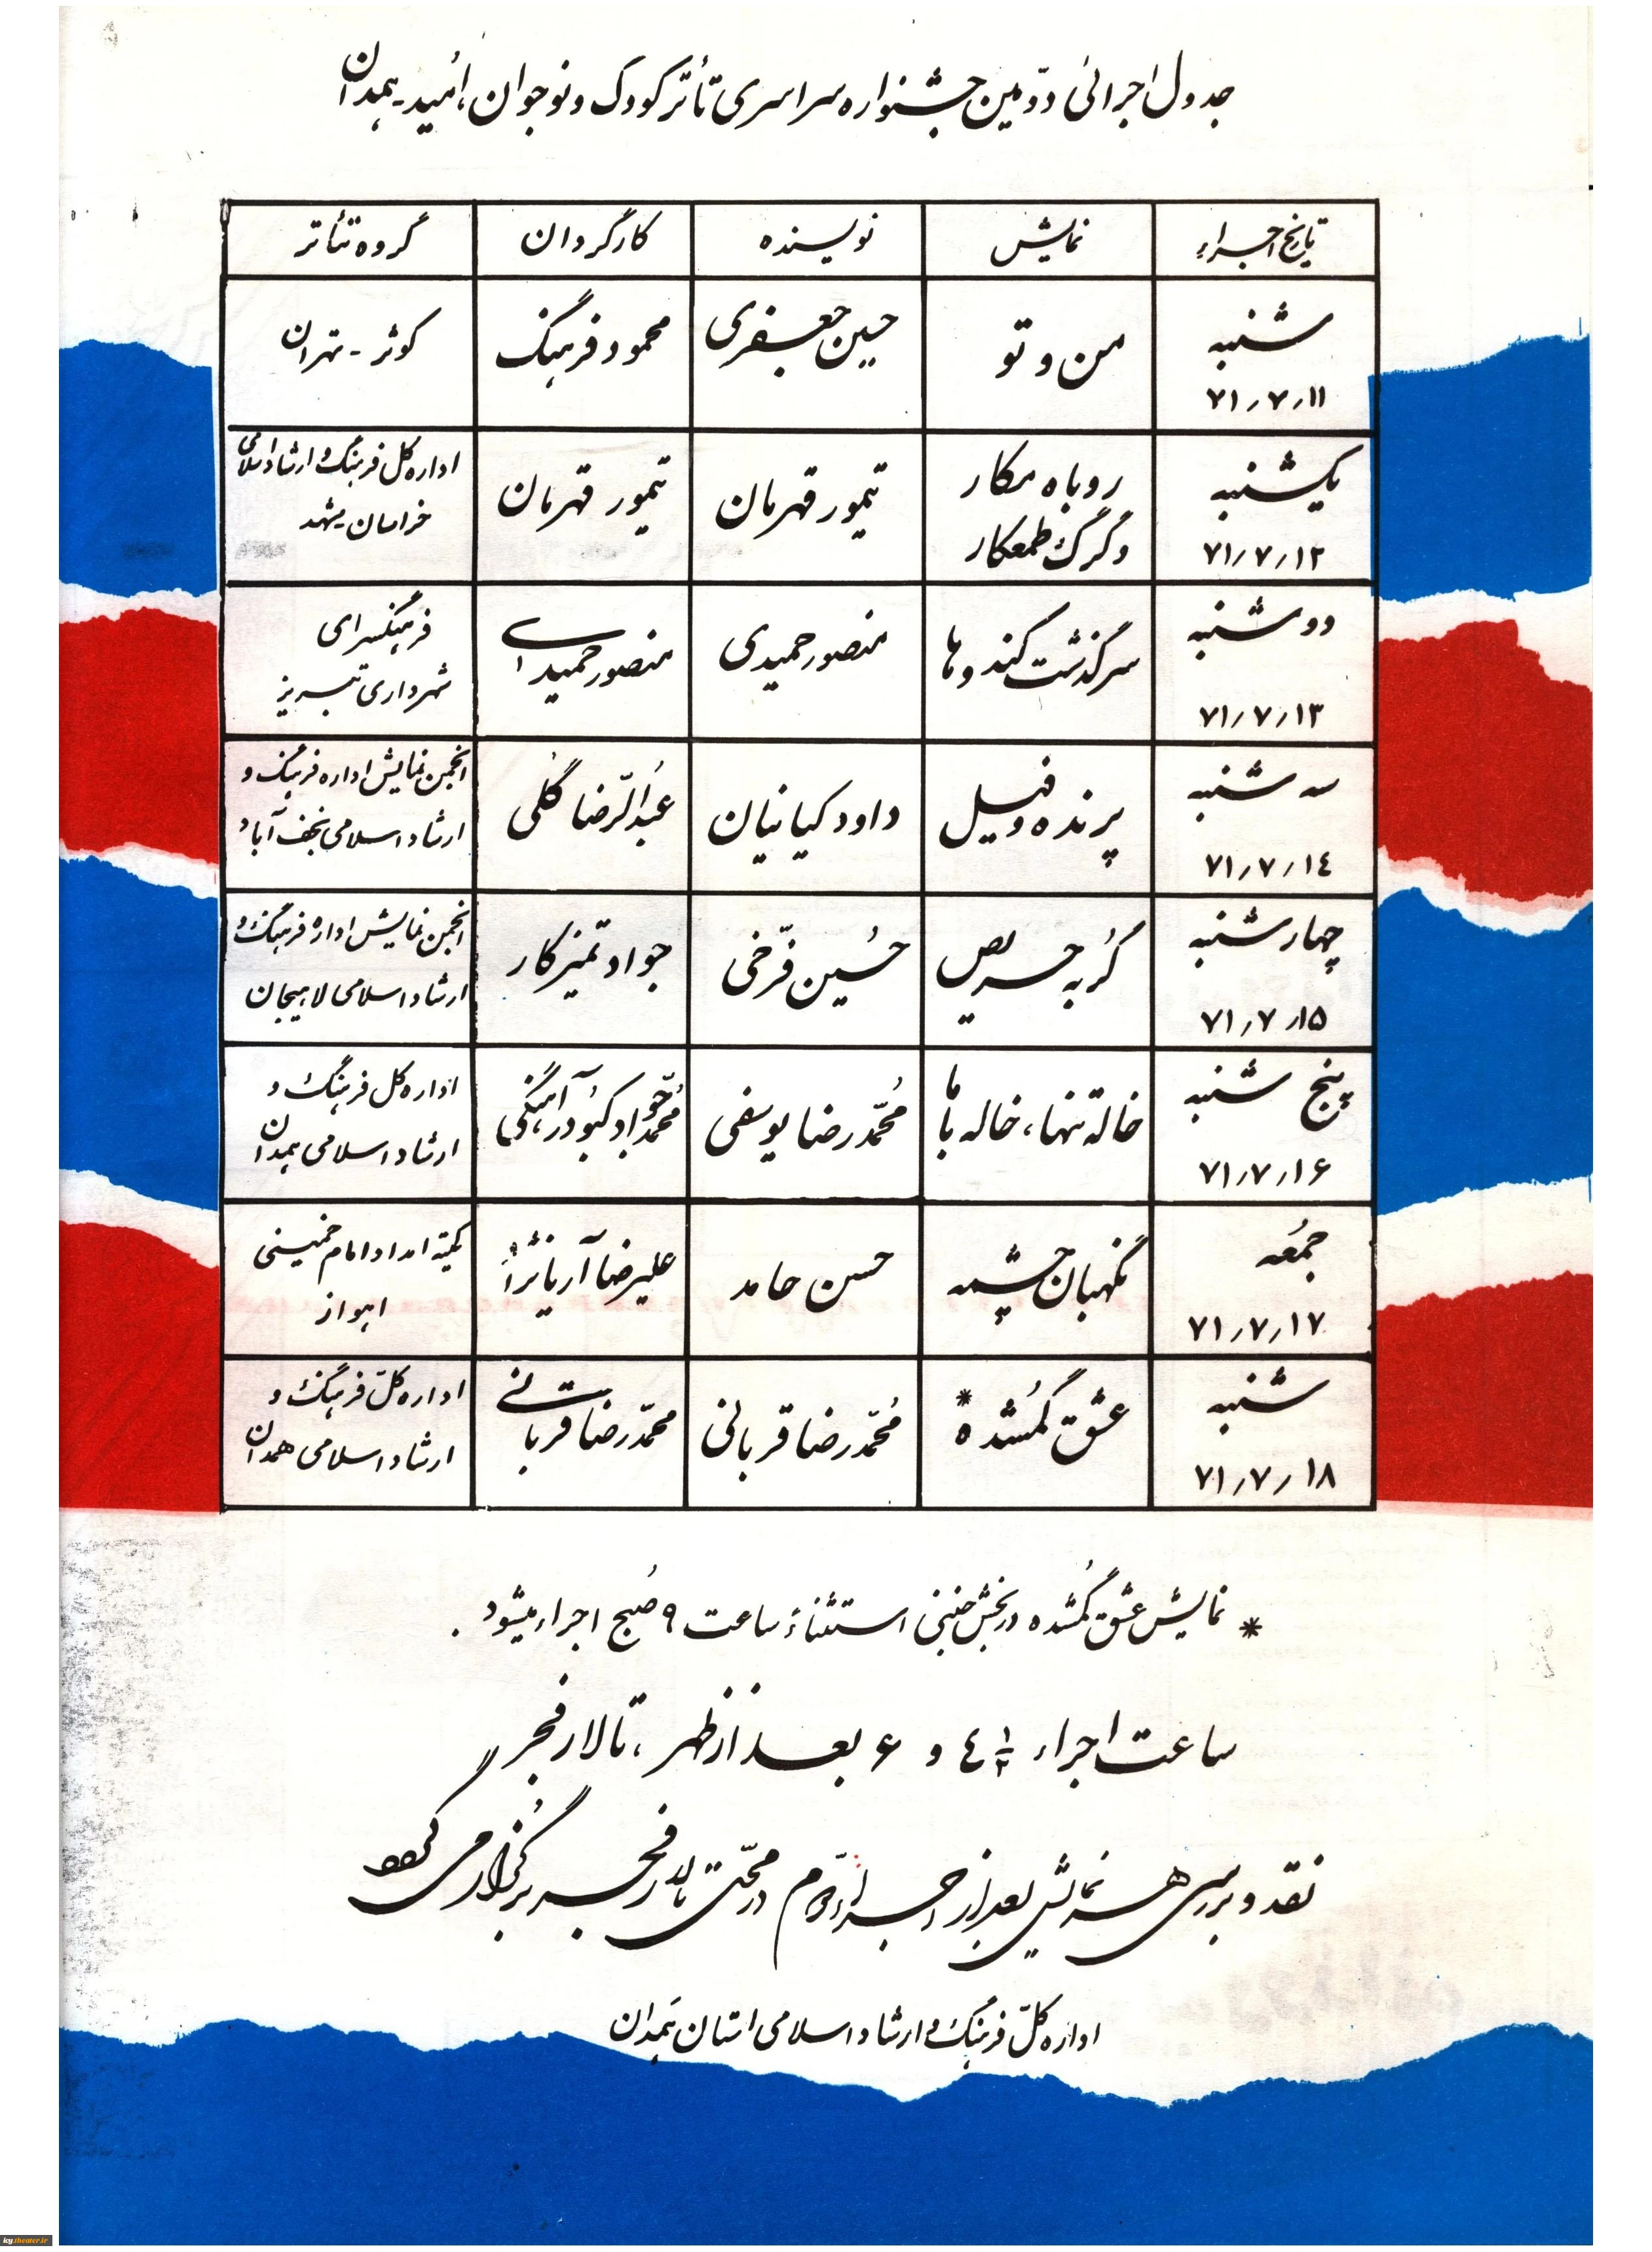 جدول اجرائی دوّمین جشنواره سراسری تأتر کودک و نوجوان، اُمید - همدان
تاریخ اجراء نمایش نویسنده کارگردان گروه تئاتر
شنبه ۷۱/۷/۱۱ من و تو حسین جعفری محمود فرهنگ کوثر - تهران
یکشنبه ۷۱/۷/۱۲ روباه مکار و گرگ طمعکار تیمور قهرمان تیمور قهرمان اداره کل فرهنگ و ارشاد اسلامی خراسان مشهد
دوشنبه ۷۱/۷/۱۳ سرگذشت کندوها منصور حمیدی منصور حمیدی فرهنگسرای شهرداری تبریز
سه شنبه ۷۱/۷/۱٤ پرنده و فیل داود کیانیان عبدالرّضا گلی انجمن نمایش اداره فرهنگ و ارشاد اسلامی نجف آباد
چهارشنبه ۷۱/۷/۱۵ گُربه حریص حُسین فرّخی جواد تمیزکار انجمن نمایش اداره فرهنگ و ارشاد اسلامی لاهیجان
پنج شنبه ۷۱/۷/۱۶ خاله تنها، خاله باما مُحمّدرضا یوسفی مُحمّدجواد کبودرآهنگی اداره کل فرهنگ و ارشاد اسلامی همدان
جمُعه ۷۱/۷/۱۷ نگهبان چشمه حسن حامد علیرضا آریانژاد کمیته امداد امام خمینی اهواز
شنبه ۷۱/۷/۱۸ عشق گمُشده * مُحمّدرضا قربانی محمّدرضا قربانی اداره کلّ فرهنگ و ارشاد اسلامی همدان
* نمایش عشق گمُشده در بخش جنبی استثناءً ساعت ۹ صُبح اجراء میشود.
ساعت اجراء ٤ ۱/۲ و ۶ بعد از ظهر، تالار فجر
نقد و بررسی هر نمایش بعد از اجراء دوّم در محلّ تالار فجر برگزار می گردد
اداره کلّ فرهنگ و ارشاد اسلامی استان همَدان
icy.theater.ir